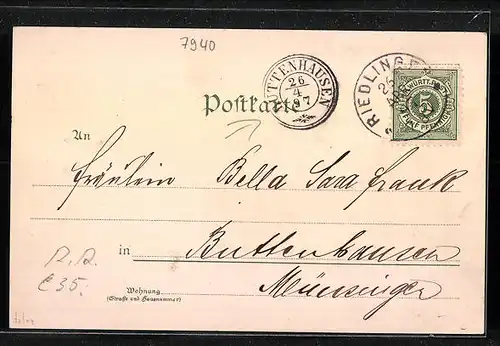 7940
BUTTENHAUSEN
26
4
97
RIEDLINGEN
25
APR
K. WÜRTT. POST
5
FÜNF PFENNIG
Postkarte
An
Fräulein Bella Sara Frank
in Buttenhausen
Münsingen
R.R.
€ 35.
Wohnung
(Straße und Hausnummer)